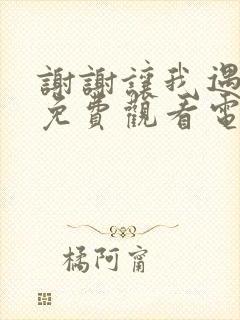 謝謝讓我遇
免費觀看電
橘阿甯